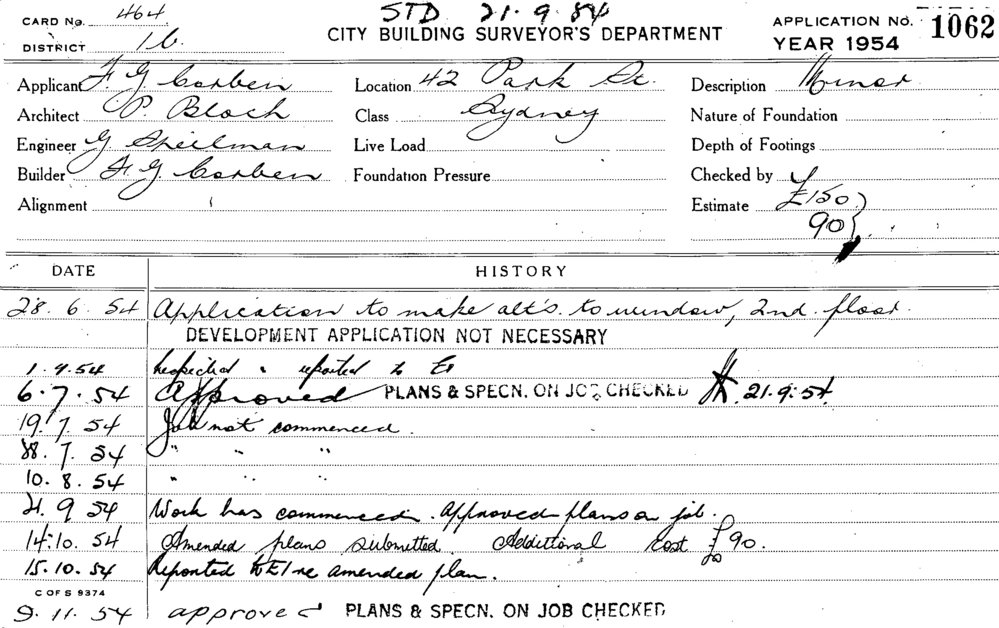 CARD No. 464
STD 21.9.54
APPLICATION No. 1062
DISTRICT 1b
CITY BUILDING SURVEYOR'S DEPARTMENT
YEAR 1954
Applicant F G Corben
Location 42 Park St.
Description Minor
Architect P. Bloch
Class Sydney
Nature of Foundation
Engineer G Speilman
Live Load
Depth of Footings
Builder F G Corben
Foundation Pressure
Checked by
Alignment
Estimate £150
90
DATE HISTORY
28.6.54 Application to make alt's. to window, 2nd. floor.
DEVELOPMENT APPLICATION NOT NECESSARY
1.7.54 Inspected " reported to EI
6.7.54 Approved PLANS & SPECN. ON JOB CHECKED 21.9.54.
19.7.54 Job not commenced.
28.7.54 " " "
10.8.54 " " "
21.9.54 Work has commenced. Approved plans on job.
14.10.54 Amended plans submitted. Additional cost £90.
15.10.54 Reported to EI re amended plan.
C OF S 9374
9.11.54 approved PLANS & SPECN. ON JOB CHECKED